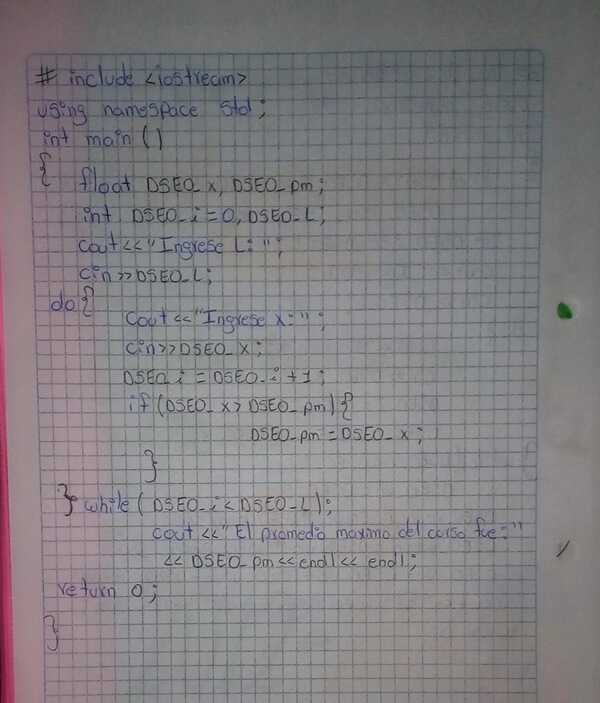 # include <iostream>
using namespace std;
int main ()
{ float DSEO_x, DSEO_pm;
int DSEO_i=0, DSEO_L;
cout<<"Ingrese L: ";
cin>>DSEO_L;
do{
cout<<"Ingrese x:";
cin>>DSEO_x;
DSEO_i = DSEO_i+1;
if (DSEO_x> DSEO_pm) {
DSEO_pm=DSEO_x;
}
} while( DSEO_i<DSEO_L);
cout <<"El promedio maximo del curso fue:"
<< DSEO_pm<<endl<< endl;
return 0;
}